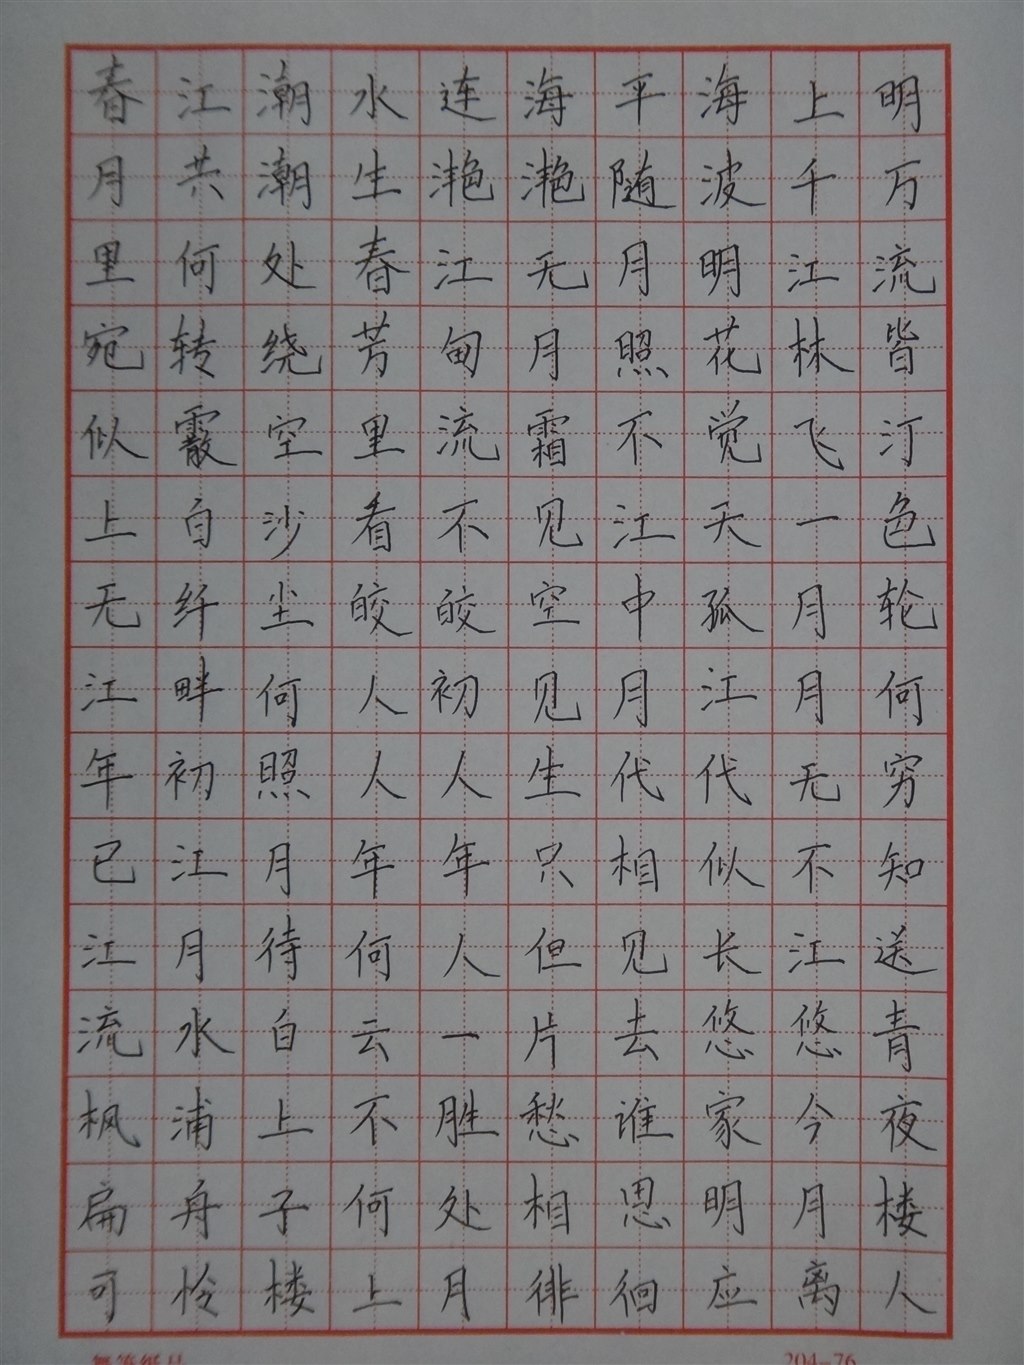 春江潮水连海平海上明
月共潮生滟滟随波千万
里何处春江无月明江流
宛转绕芳甸月照花林皆
似霰空里流霜不觉飞汀
上白沙看不见江天一色
无纤尘皎皎空中孤月轮
江畔何人初见月江月何
年初照人人生代代无穷
已江月年年只相似不知
江月待何人但见长江送
流水白云一片去悠悠青
枫浦上不胜愁谁家今夜
扁舟子何处相思明月楼
可怜楼上月徘徊应离人
204-76